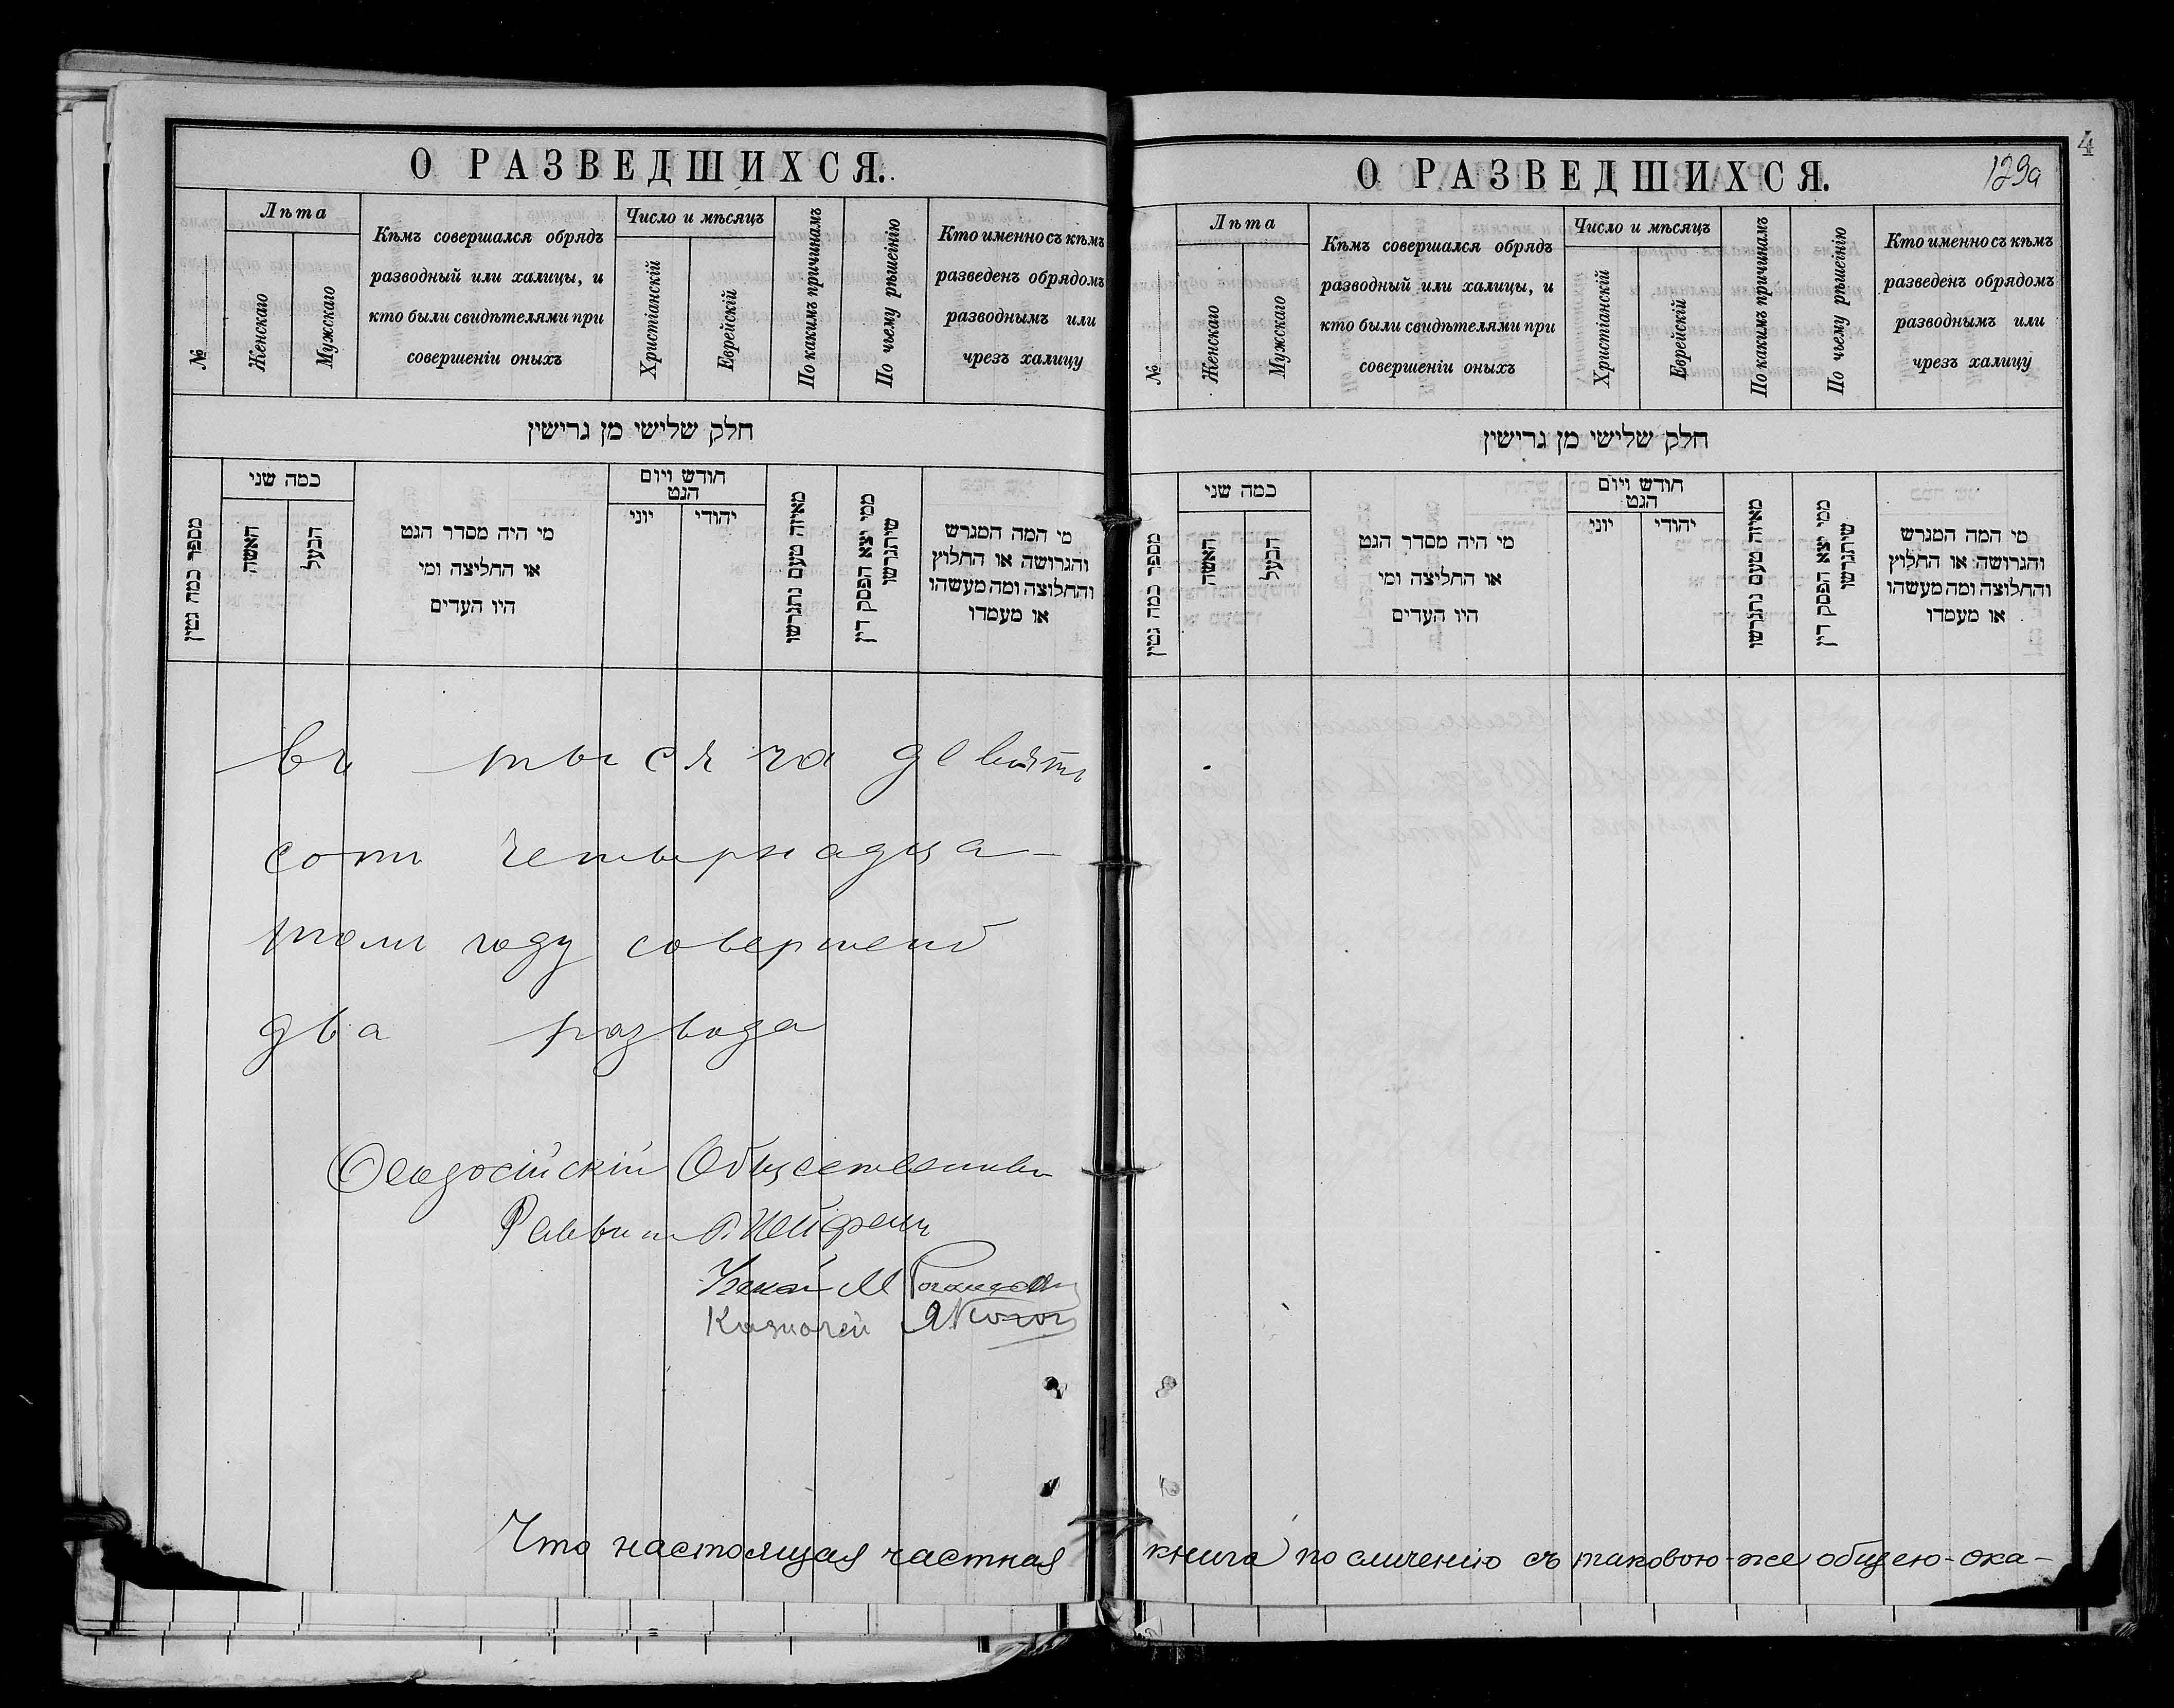 О РАЗВЕДШИХСЯ.
№
Лѣта
Женскаго
Мужскаго
Кѣмъ совершался обрядъ
разводный или халицы, и
кто были свидѣтелями при
совершеніи оныхъ
Число и мѣсяцъ
Христіанскій
Еврейскій
По какимъ причинамъ
По чьему рѣшенію
Кто именно съ кѣмъ
разведенъ обрядомъ
разводнымъ или
чрезъ халицу
חלק שלישי מן גרישין
מספר כמה גטין
כמה שני
האשה
הבעל
מי היה מסדר הגט
או החליצה ומי
היו העדים
חודש ויום
הגט
יוני
יהודי
מאיזה טעם נתגרשו
ממי יצא הפסק דין
שיתגרשו
מי המה המגרש
והגרושה או החלוץ
והחלוצה ומה מעשהו
או מעמדו
Въ тысяча девять
сотъ четырнадца-
томъ году совершено
два развода
Ѳеодосійскій Общественный
Раввинъ
Казначей
Что настоящая частная
О РАЗВЕДШИХСЯ.
129а
4
№
Лѣта
Женскаго
Мужскаго
Кѣмъ совершался обрядъ
разводный или халицы, и
кто были свидѣтелями при
совершеніи оныхъ
Число и мѣсяцъ
Христіанскій
Еврейскій
По какимъ причинамъ
По чьему рѣшенію
Кто именно съ кѣмъ
разведенъ обрядомъ
разводнымъ или
чрезъ халицу
חלק שלישי מן גרישין
מספר כמה גטין
כמה שני
האשה
הבעל
מי היה מסדר הגט
או החליצה ומי
היו העדים
חודש ויום
הגט
יוני
יהודי
מאיזה טעם נתגרשו
ממי יצא הפסק דין
שיתגרשו
מי המה המגרש
והגרושה או החלוץ
והחלוצה ומה מעשהו
או מעמדו
книга по сличенію съ таковою-же общею-ока-